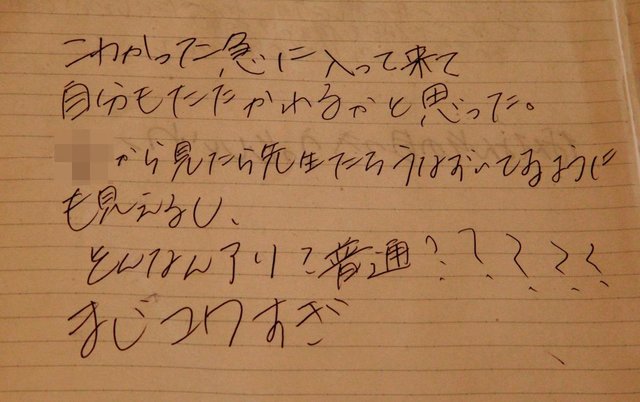 こわかった急に入って来て
自分もたたかれるかと思った。
から見たら先生たち うばおいてるように
も見えるし、
そんなんアリ？普通？？？？？？
まじコワすぎ